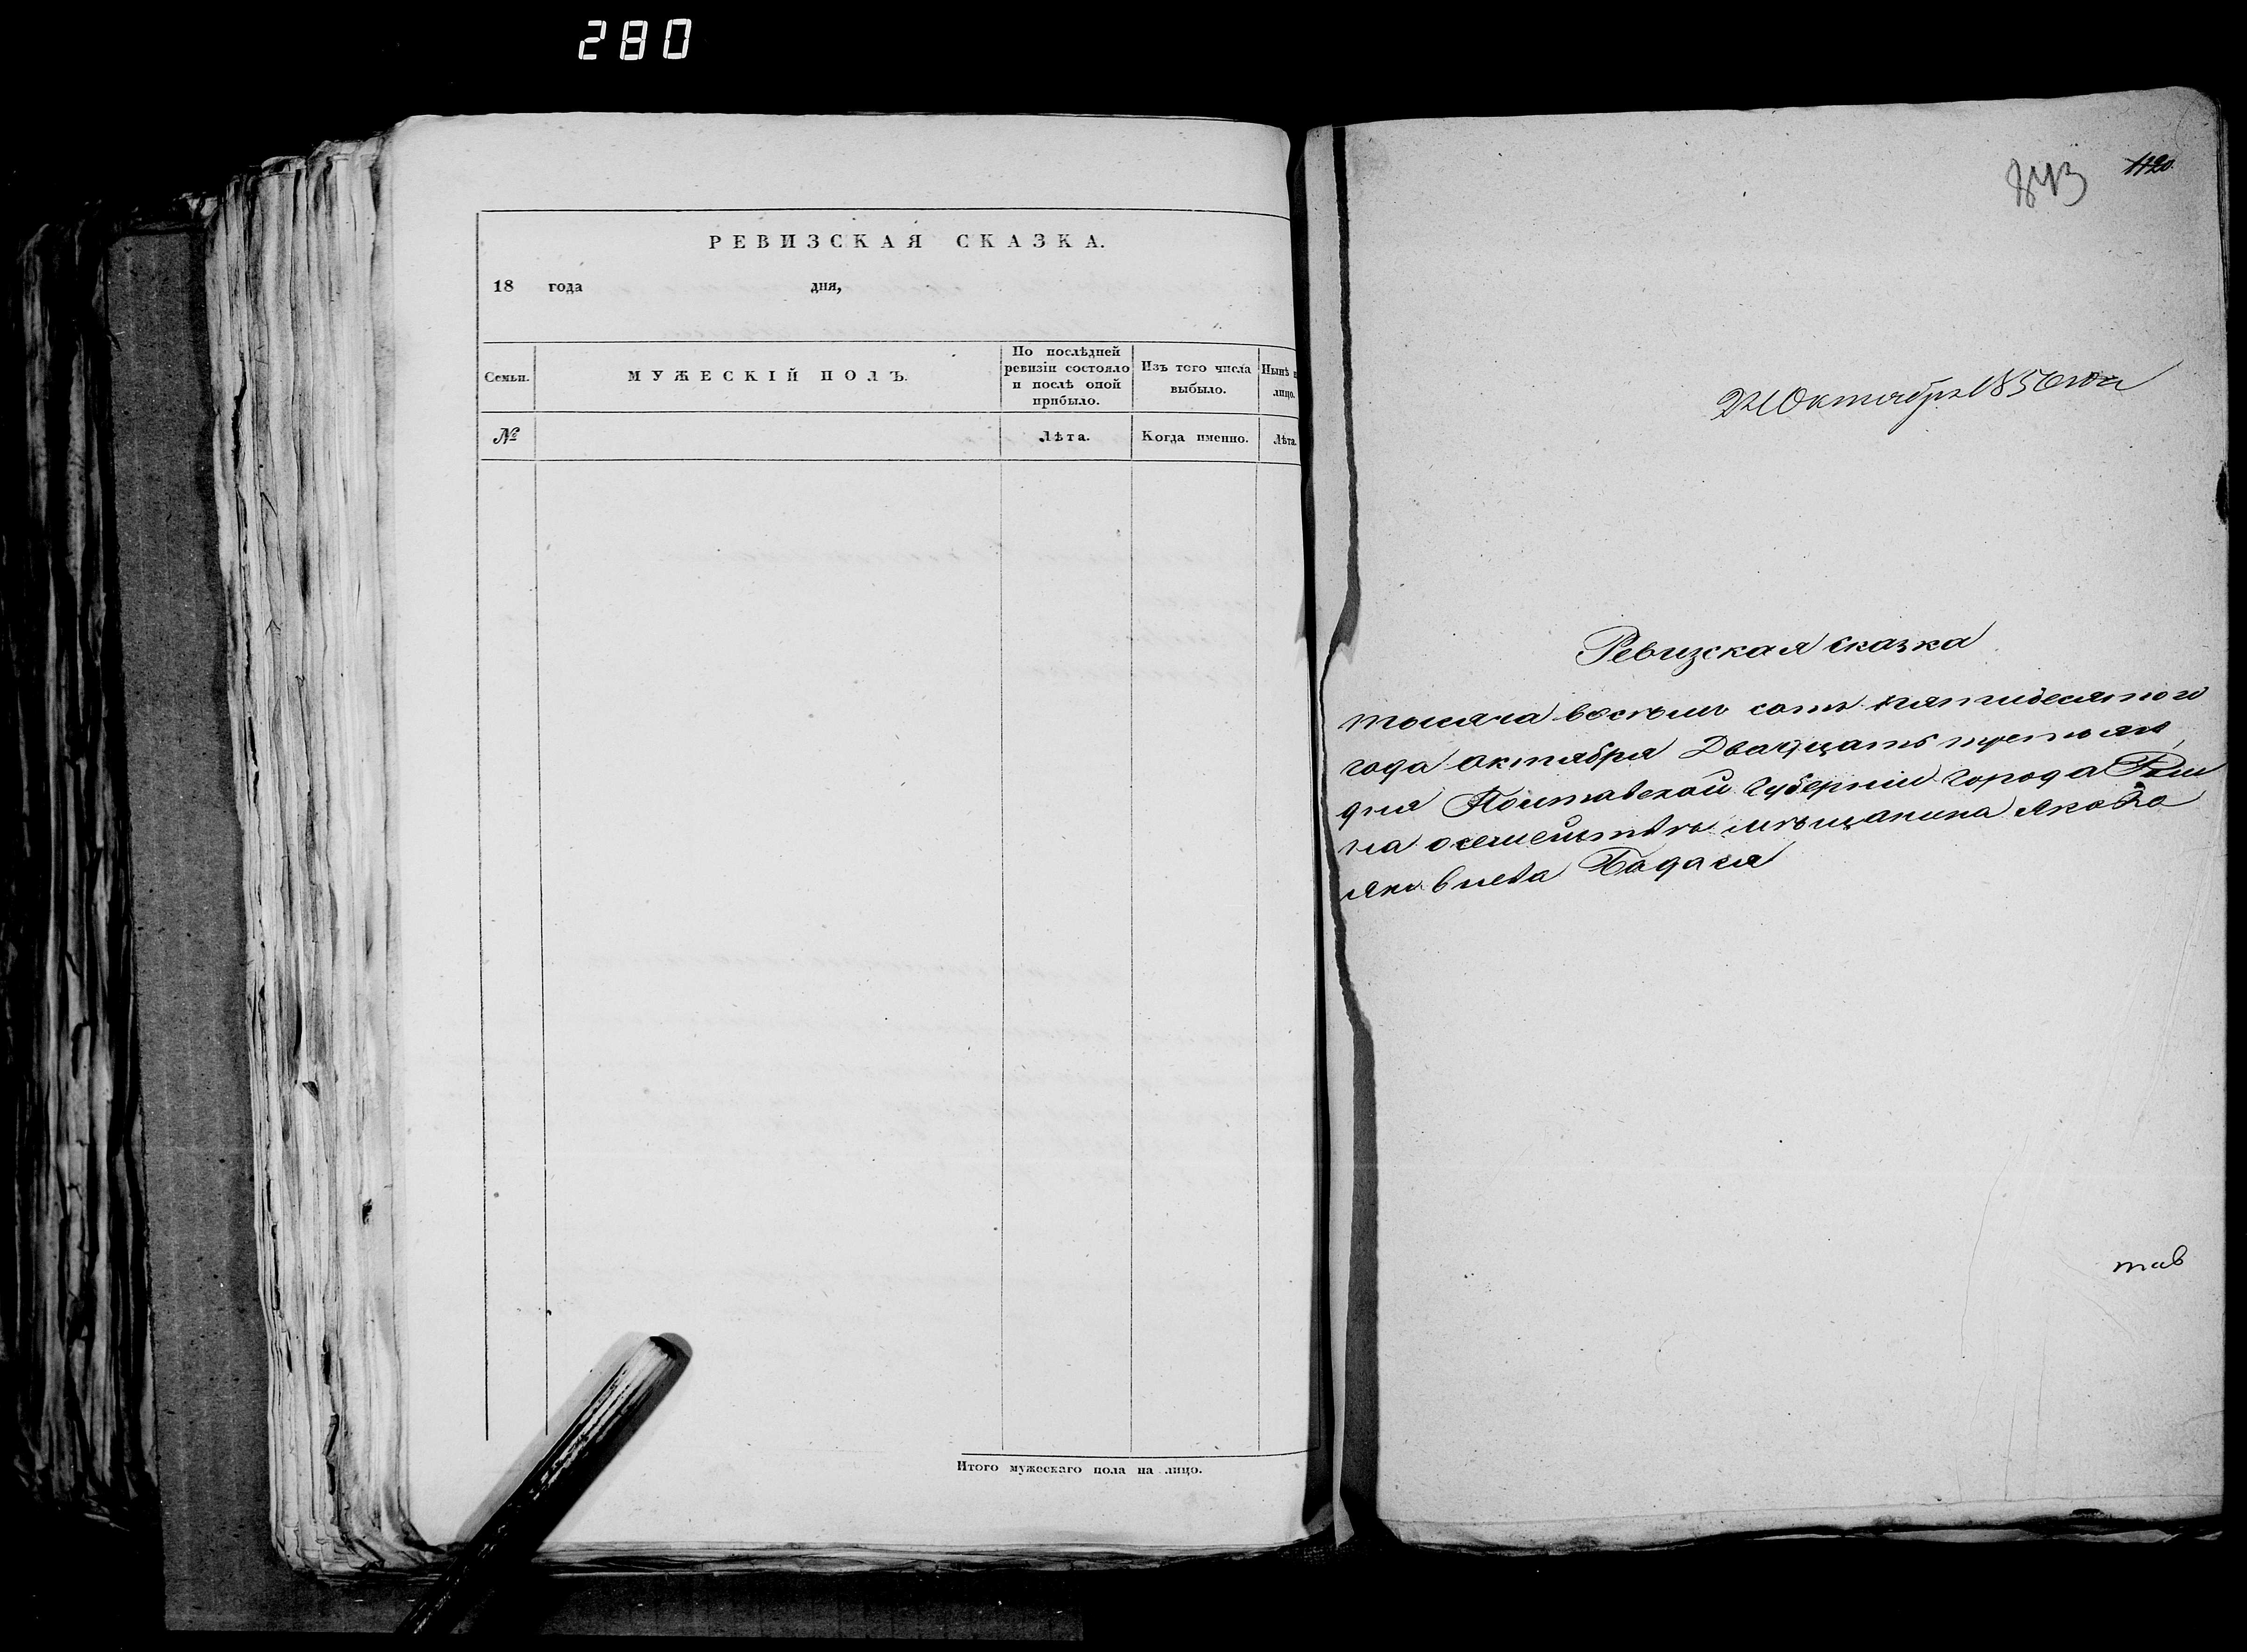 280
РЕВИЗСКАЯ СКАЗКА.
18 года дня,
Семьи.
МУЖЕСКІЙ ПОЛЪ.
По послѣдней
ревизіи состояло
и послѣ оной
прибыло.
Изъ того числа
выбыло.
Нынѣ
лицо.
№
Лѣта.
Когда именно.
Лѣта.
Итого мужескаго пола на лицо.
843 1120
Октября 1850 года
Ревизская сказка
тысяча восѣмъ сотъ пятидесятого
года октября Двадцать третьяго
дня Полтавской Губерніи города Ром
на осемействѣ мѣщанина Якова
Яковлева Бадача
тав